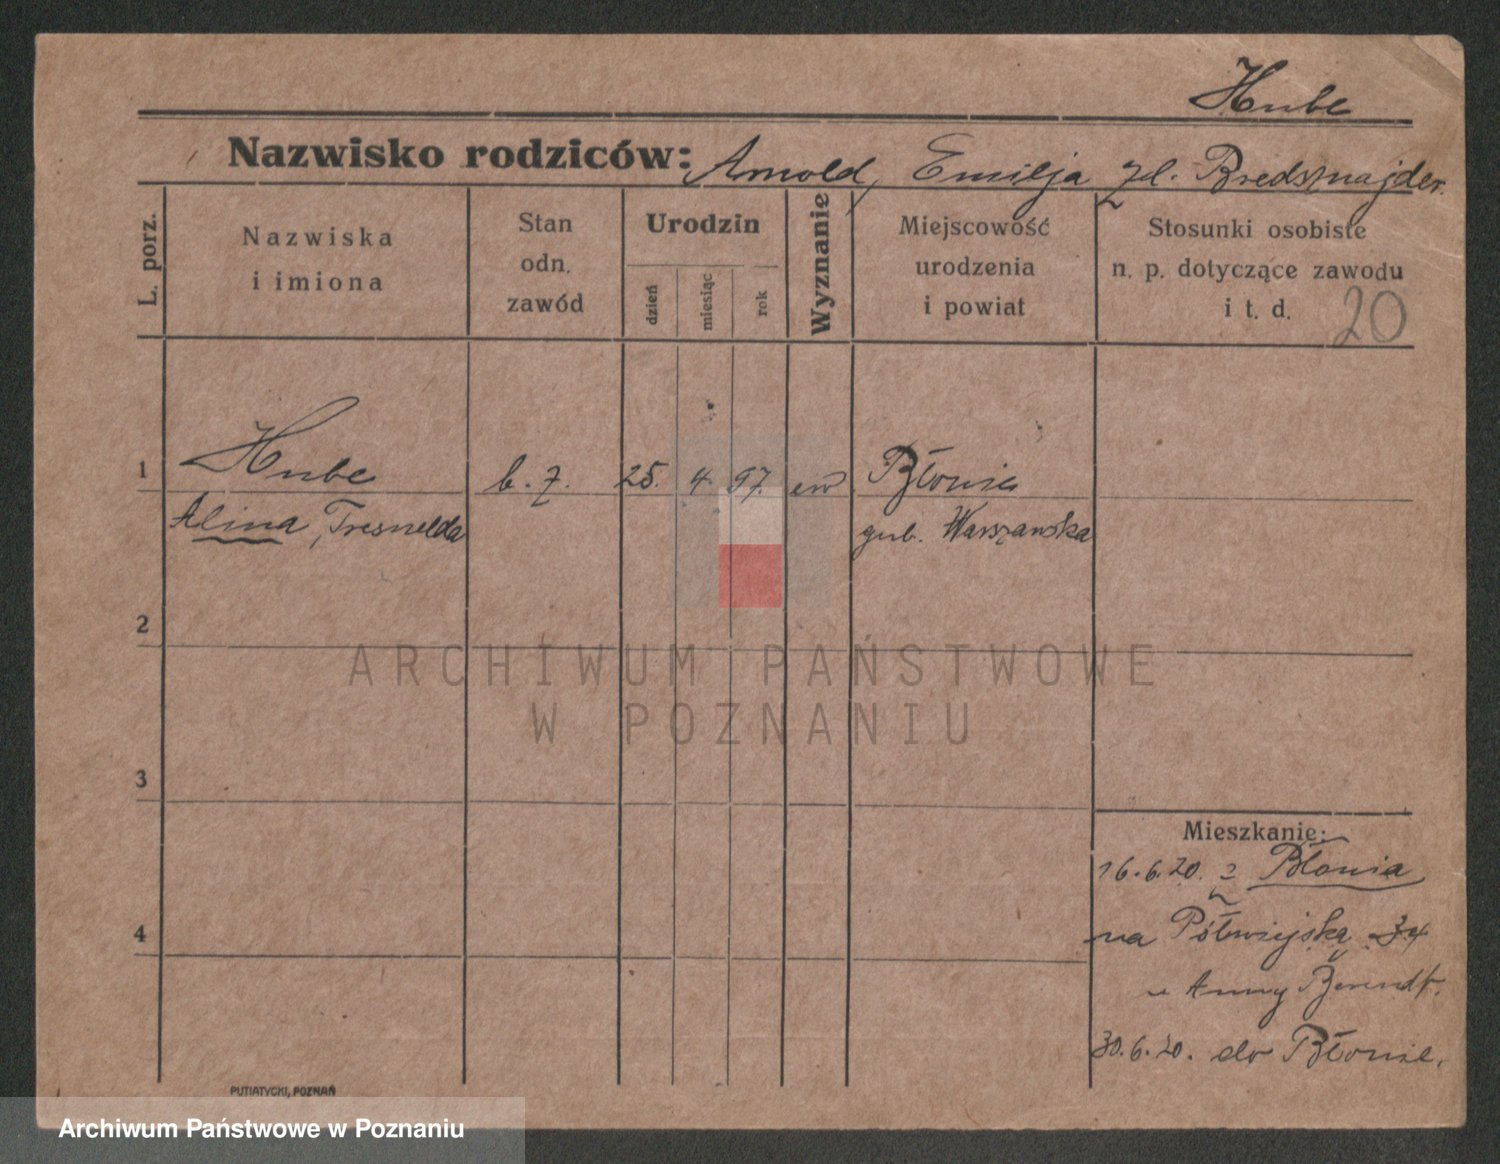 Hube
Nazwisko rodziców: Arnold, Emilja zd. Bredsznajder.
L. porz.
Nazwiska
i imiona
Stan
odn.
zawód
Urodzin
dzień
miesiąc
rok
Wyznanie
Miejscowość
urodzenia
i powiat
Stosunki osobiste
n. p. dotyczące zawodu
i t. d.
20
1 Hube b. z. 25. 4. 97. ew Błonie
Alina, Tresnelda gub. Warszawska
2
3
4
Mieszkanie:
16.6.20. z Błonia
na Półwiejską 34
u Anny Berendt.
30.6.20. do Błonie.
PUTIATYCKI, POZNAŃ
ARCHIWUM PAŃSTWOWE
W POZNANIU
Archiwum Państwowe w Poznaniu